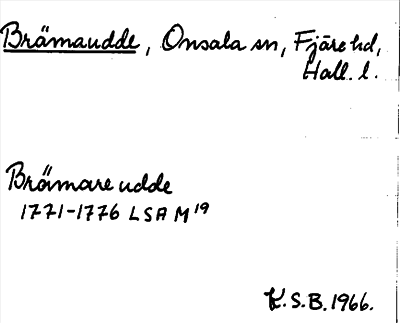 Brämaudde, Onsala sn, Fjäre hd,
Hall. l.
Brämare udde
1771-1776 LSA M 19
K.S.B. 1966.